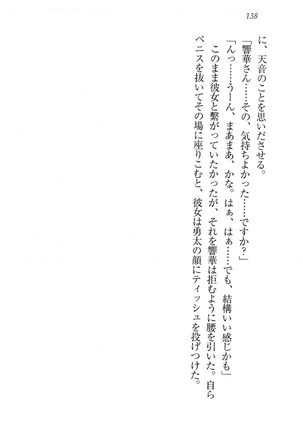 138
に、天音のことを思いださせる。
「響華さん……その、気持ちよかった……ですか？」
「んっ……うーん、まあまあ、かな。はぁ、はぁ……でも、結構いい感じかも」
このまま彼女と繋がっていたかったが、それを響華は拒むように腰を引いた。自ら
ペニスを抜いてその場に座りこむと、彼女は勇太の顔にティッシュを投げつけた。